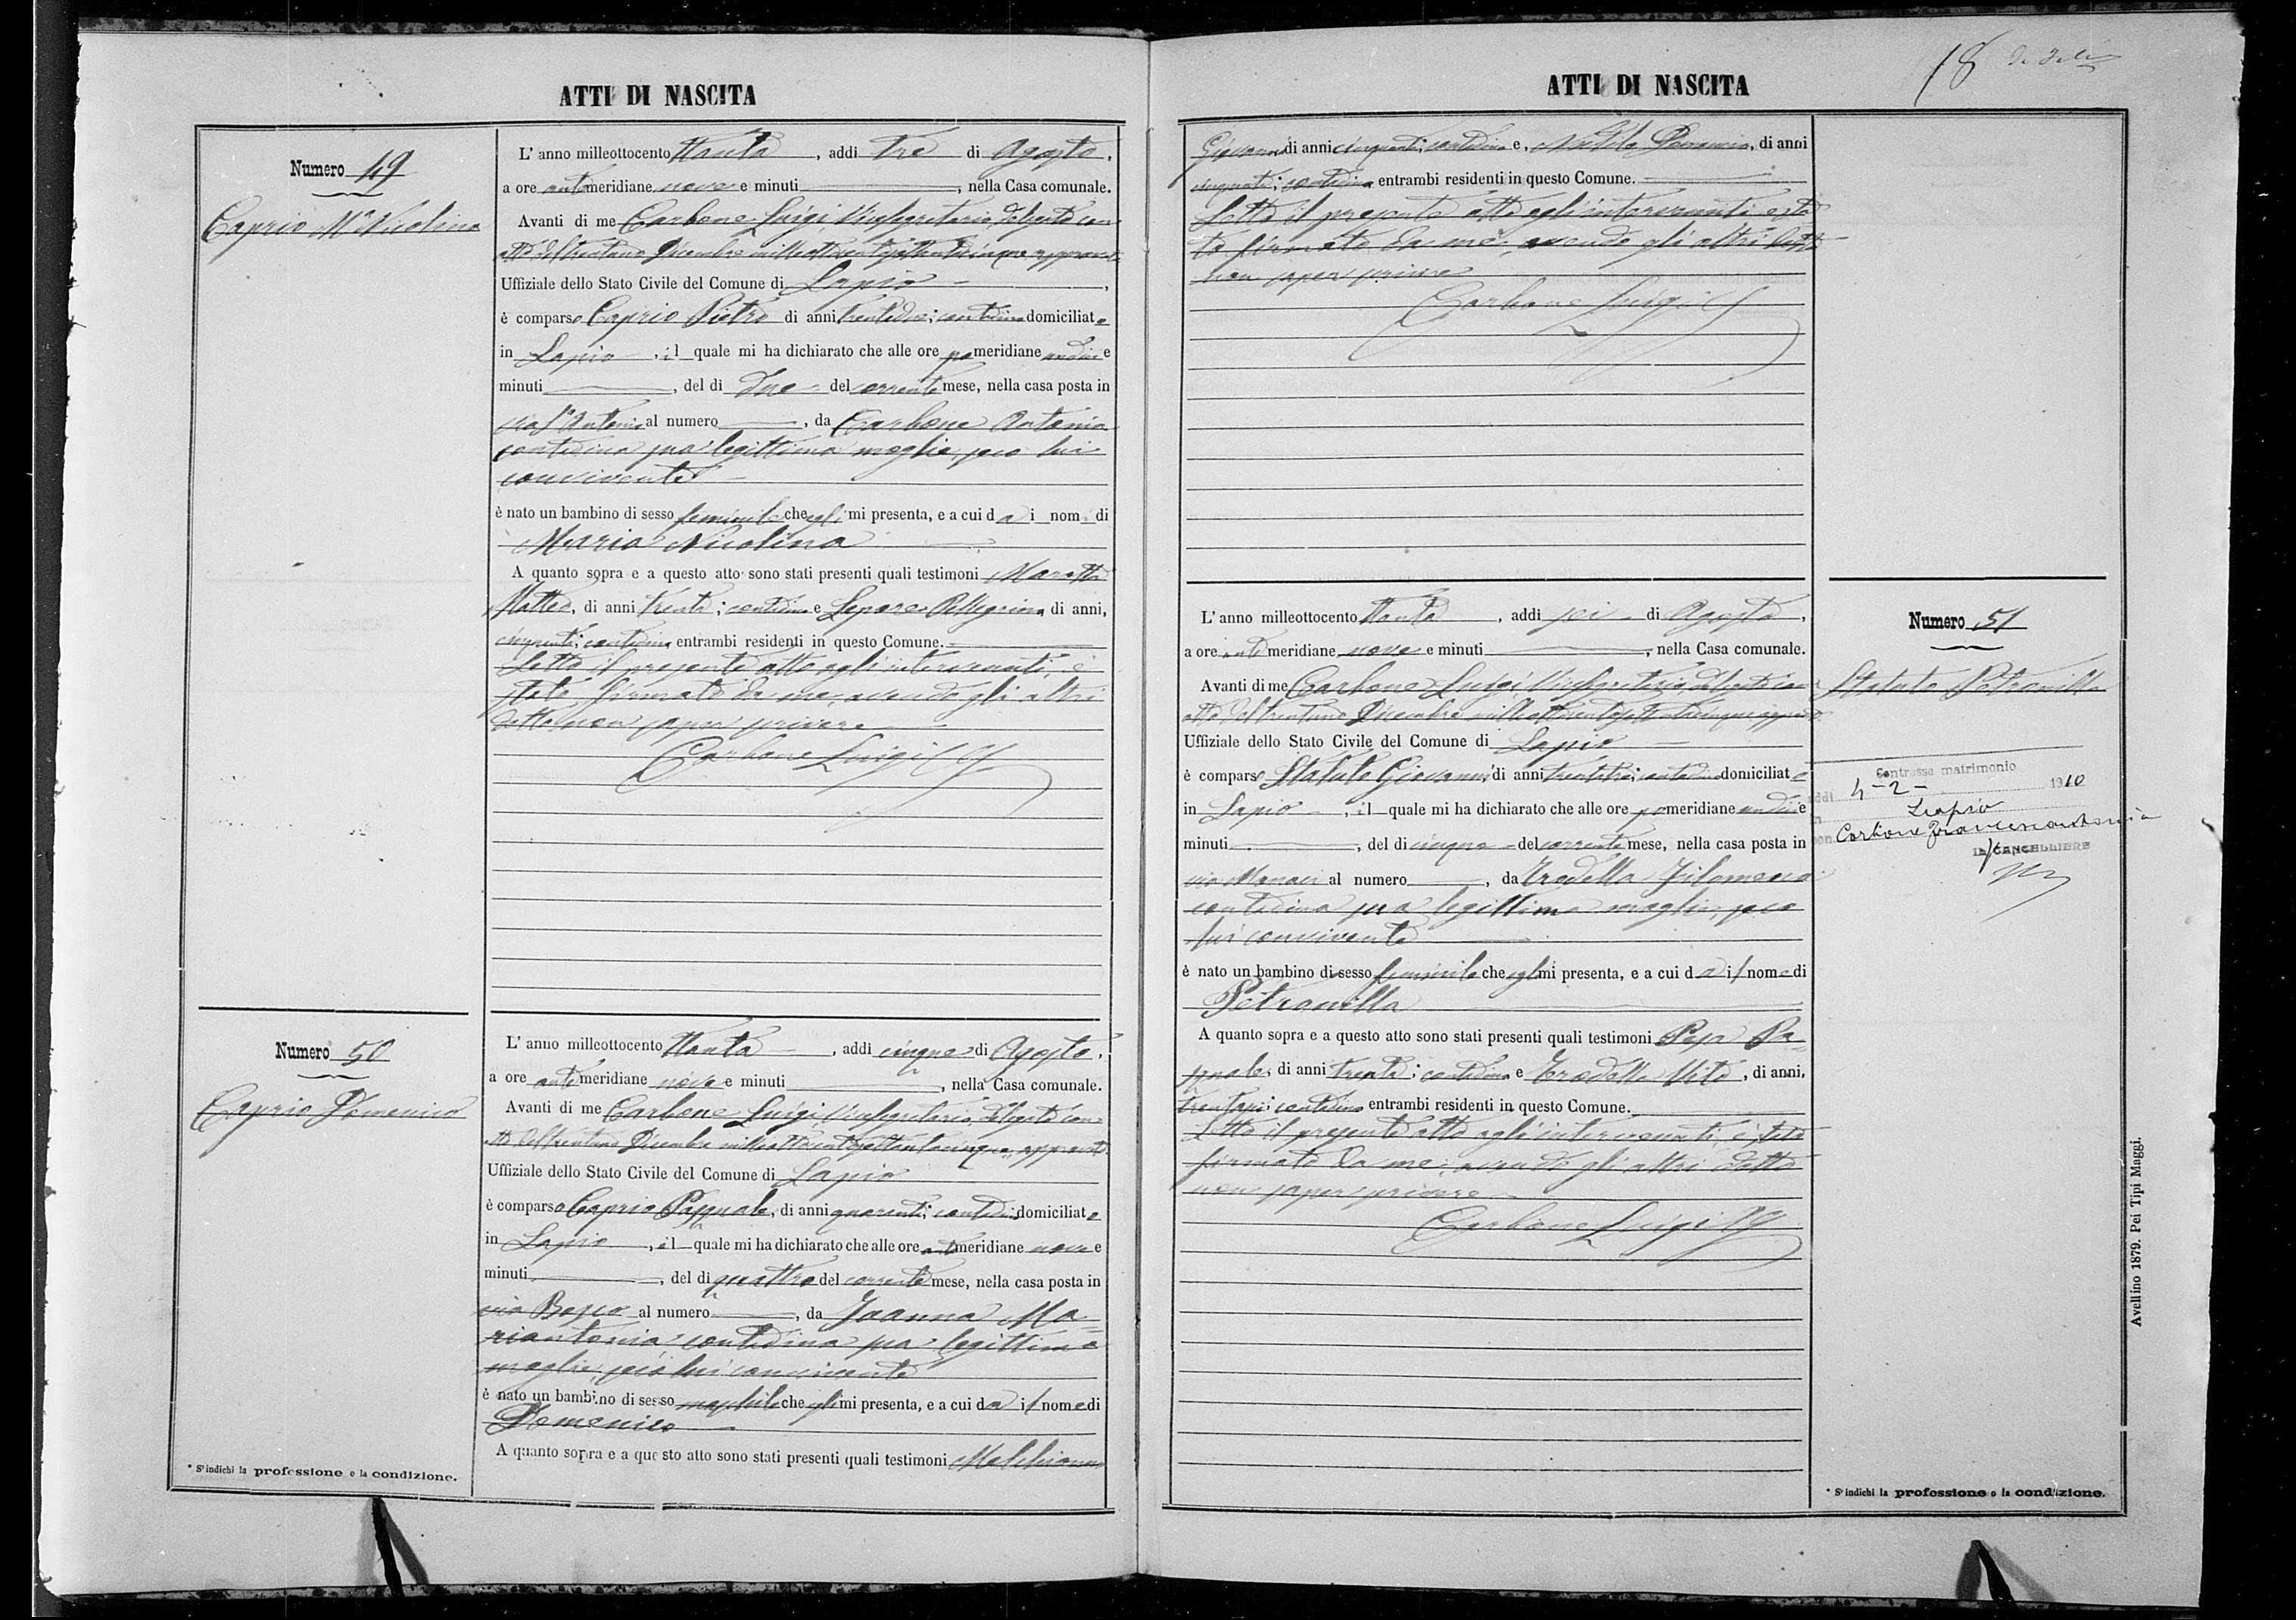 ATTI DI NASCITA
Numero 49
Caprio Mª Nicolina
L' anno milleottocento ttanta, addi tre di Agosto,
a ore antimeridiane nove e minuti, nella Casa comunale.
Avanti di me Carbone Luigi, Vicesegretario, delegato con
atto del trentuno Dicembre milleottocentosettantacinque approvato
Uffiziale dello Stato Civile del Comune di Lapio,
è comparso Caprio Pietro di anni trentadue; contadino domiciliato
in Lapio, il quale mi ha dichiarato che alle ore pomeridiane undici e
minuti, del di due del corrente mese, nella casa posta in
via S. Antonio al numero, da Carbone Antonia
contadina sua legittima moglie, seco lui
convivente
è nato un bambino di sesso feminile che egli mi presenta, e a cui da i nomi di
Maria Nicolina
A quanto sopra e a questo atto sono stati presenti quali testimoni
Matteo, di anni trenta; contadino e Lepore Pellegrino, di anni,
cinquanta; contadino entrambi residenti in questo Comune.
Letto il presente atto agli intervenuti, è
stato firmato da me, avendo gli altri
detto non saper scrivere
Carbone Luigi
Numero 50
Caprio Domenico
L' anno milleottocento ttanta, addi cinque di Agosto,
a ore antimeridiane nove e minuti, nella Casa comunale.
Avanti di me Carbone Luigi, Vicesegretario, delegato con
atto del trentuno Dicembre milleottocentosettantacinque, approvato
Uffiziale dello Stato Civile del Comune di Lapio
è comparso Caprio Pasquale, di anni quaranta; contadino domiciliato
in Lapio, il quale mi ha dichiarato che alle ore antimeridiane nove e
minuti, del di quattro del corrente mese, nella casa posta in
via Bosco al numero, da Joanna Ma=
riantonia contadina sua legittima
moglie, seco lui convivente
è nato un bambino di sesso maschile che egli mi presenta, e a cui da il nome di
Domenico
A quanto sopra e a questo atto sono stati presenti quali testimoni Melchionna
* S' indichi la professione o la condizione.
18
ATTI DI NASCITA
Giovanni di anni cinquanta; contadino e, Nicola Domenico, di anni
cinquanta; contadino entrambi residenti in questo Comune.
Letto il presente atto agli intervenuti è sta
to firmato da me, avendo gli altri detto
non saper scrivere
Carbone Luigi
Numero 51
Statuto Petronilla
L' anno milleottocento ttanta, addi sei di Agosto,
a ore antimeridiane nove e minuti, nella Casa comunale.
Avanti di me Carbone Luigi, Vicesegretario, delegato con
atto del trentuno Dicembre milleottocentosettantacinque approvato
Uffiziale dello Stato Civile del Comune di Lapio
è comparso Statuto Giovanni di anni trentatre; contadino domiciliato
in Lapio, il quale mi ha dichiarato che alle ore pomeridiane undici e
minuti, del di cinque del corrente mese, nella casa posta in
via Monaci al numero, da Trodella Filomena
contadina sua legittima moglie, seco
lui convivente
è nato un bambino di sesso feminile che egli mi presenta, e a cui da il nome di
Petronilla
A quanto sopra e a questo atto sono stati presenti quali testimoni Pepa Pa=
squale, di anni trenta; contadino e Trodella Vito, di anni,
trentasei; contadino entrambi residenti in questo Comune.
Letto il presente atto agli intervenuti, è stato
firmato da me, avendo gli altri detto
non saper scrivere
Carbone Luigi
Contrasse matrimonio
addi 4-2-1910
in Lapio
con Carbone Francescantonio
IL CANCELLIERE
* S' indichi la professione o la condizione.
Avellino 1879. Pei Tipi Maggi.